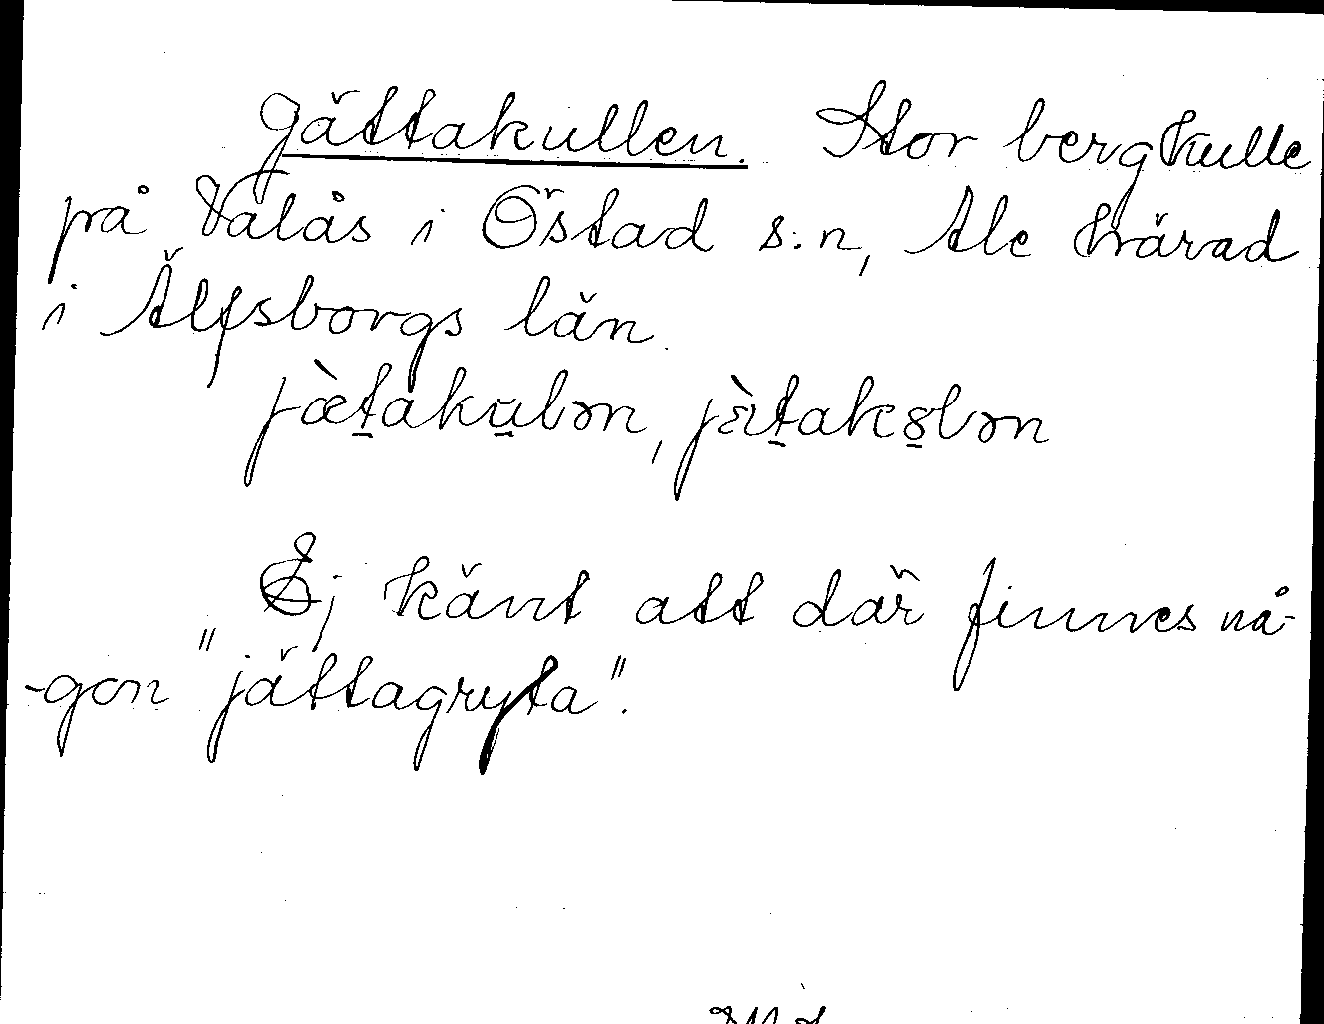 Jättakullen. Stor bergkulle
på Valås i Östad s:n, Ale härad
i Älfsborgs län.
jæ̀t̠akᵾ̠lən, jæ̀t̠ako̠lən
Ej känt att där finnes nå-
-gon "jättagryta".